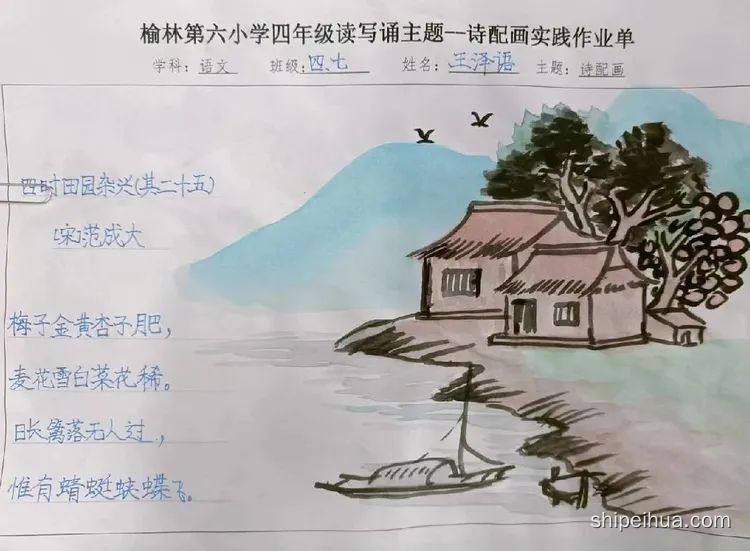 榆林第六小学四年级读写诵主题--诗配画实践作业单
学科：语文 班级：四、七 姓名：王泽语 主题：诗配画
四时田园杂兴(其二十五)
[宋]范成大
梅子金黄杏子肥，
麦花雪白菜花稀。
日长篱落无人过，
惟有蜻蜓蛱蝶飞。
shipeihua.com